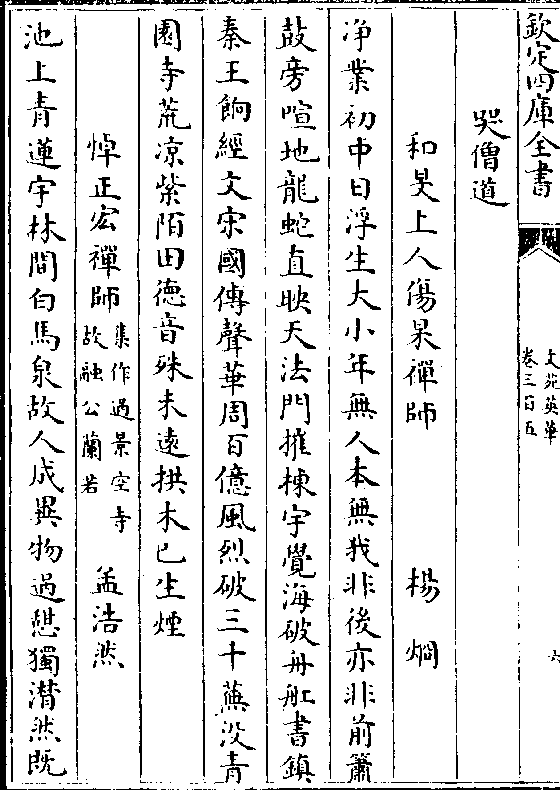 欽定四庫全書
文苑英華
卷三百五
六
哭僧道
和旻上人傷果禪師 楊烱
浄業初中日浮生大小年無人本無我非後亦非前簫
鼓旁喧地龍蛇直映天法門摧棟宇覺海破舟舡書鎮
秦王餉經文宋國傳聲華周百億風烈破三十蕪没青
園寺荒凉紫陌田德音殊未遠拱木已生煙
悼正宏禪師集作過景空寺故融公蘭若 孟浩然
池上青蓮宇林間白馬泉故人成異物過憇獨潸然既